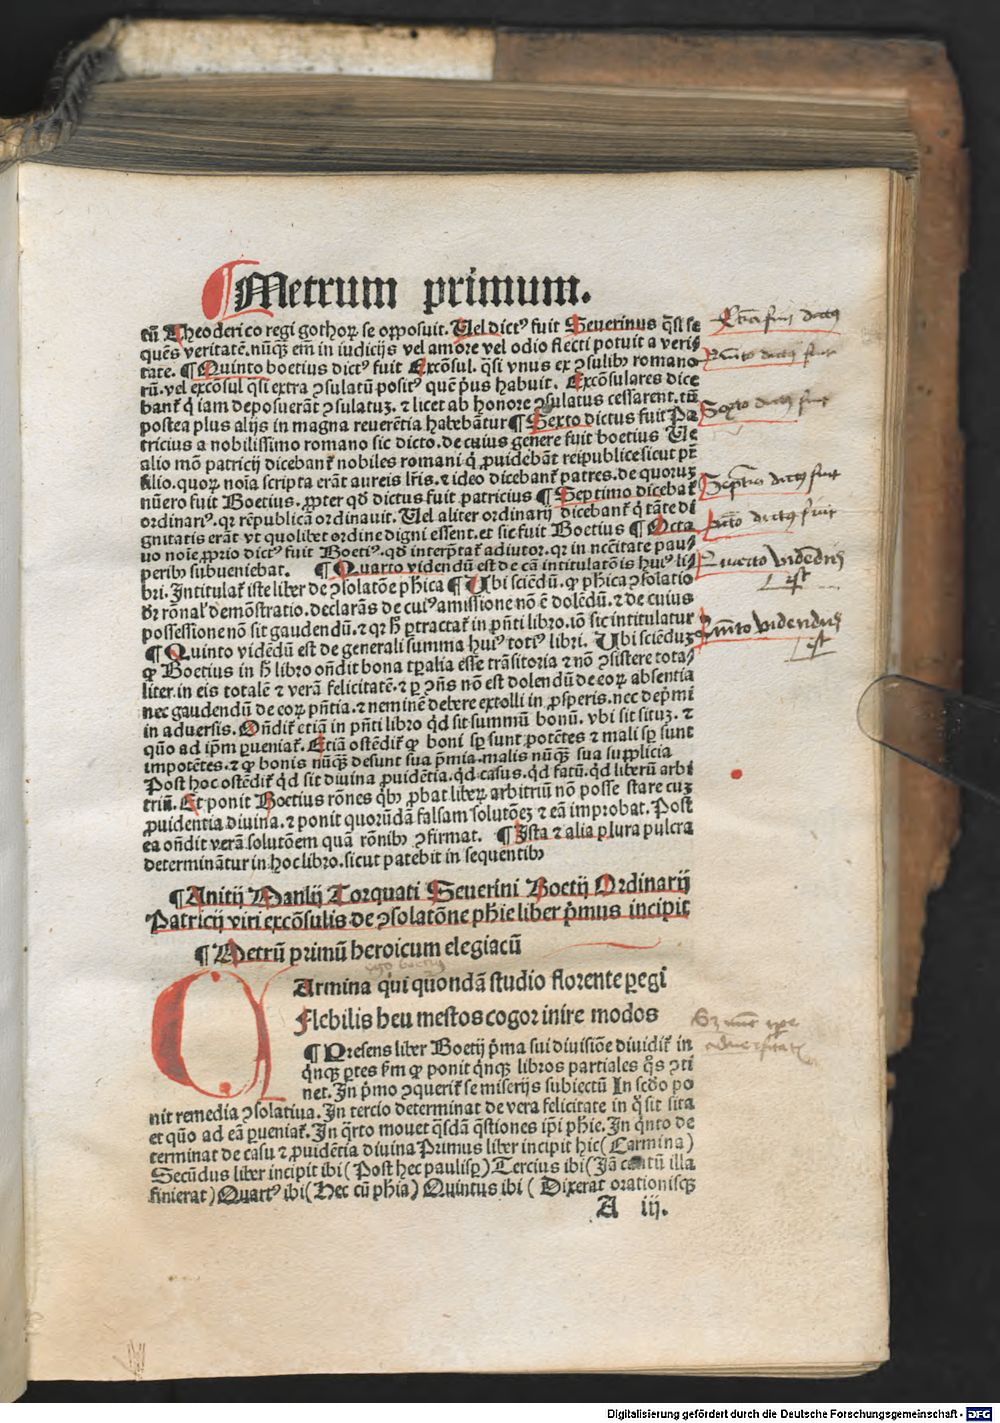 Metrum primum.
tū Theoderico regi gothoꝝ se opposuit. Uel dictꝰ fuit Seuerinus q̄si se
quēs veritatē. nūqꝫ em̄ in iudicijs vel amore vel odio flecti potuit a veri
tate. ¶ Quinto boetius dictꝰ fuit Excōsul. q̄si vnus ex ꝯsulibꝰ romano
rū. vel excōsul q̄si extra ꝯsulatū positꝰ quē pꝰus habuit. Excōsulares dice
banť q̇ iam deposuerāt ꝯsulatuꝫ. ⁊ licet ab honore ꝯsulatus cessarent. tn̄
postea plus alijs in magna reuerētia habebātur ¶ Sexto dictus fuit Pa
tricius a nobilissimo romano sic dicto. de cuius genere fuit boetius Ue
alio mō patricij dicebanť nobiles romani q̇ ꝓuidebāt reipublice sicut pr̄
filio. quoꝝ noīa scripta erāt aureis lr̄is. ⁊ ideo dicebanť patres. de quoruꝫ
nūero fuit Boetius. ꝓpter qđ dictus fuit patricius ¶ Septimo dicebať
ordinariꝰ. qꝛ rēpublicā ordinauit. Uel aliter ordinarij dicebanť q̇ tāte di
gnitatis erāt vt quolibet ordine digni essent. et sic fuit Boetius ¶ Octa
uo noīe ꝓprio dictꝰ fuit Boetiꝰ. qđ interp̄tať adiutor. qꝛ in nc̄citate pau⸗
peribꝰ subueniebat. ¶ Quarto videndū est de cā intitulatōis huiꝰ li⸗
bri. Intitulať iste liber de ꝯsolatōe ph̄ica ¶ Ubi sciēdū. ꝙ ph̄ica ꝯsolatio
ē rōnal' demōstratio. declarās de cuiꝰ amissione nō ē dolēdū. ⁊ de cuius
possessione nō sit gaudendū. ⁊ qꝛ h̄ ꝑtractať in pn̄ti libro. iō sic intitulatur
¶ Quinto vidēdū est de generali summa huiꝰ totiꝰ libri. Ubi sciēduꝫ
ꝙ Boetius in h̄ libro on̄dit bona tꝑalia esse trāsitoria ⁊ nō ꝯsistere tota⸗
liter. in eis totalē ⁊ verā felicitatē. ⁊ ꝑ ꝯn̄s nō est dolendū de eoꝝ absentia
nec gaudendū de eoꝝ pn̄tia. ⁊ neminē debere extolli in ꝓsperis. nec dep̄mi
in aduersis. On̄diť etiā in pn̄ti libro qđ sit summū bonū. vbi sit situꝫ. ⁊
quō ad ip̄m ꝑueniať. Etiā ostēdiť ꝙ boni sꝑ sunt potētes ⁊ mali sꝑ sunt
impotētes. ⁊ ꝙ bonis nūqꝫ desunt sua p̄mia. malis nūqꝫ sua supplicia
Post hoc ostēdiť qđ sit diuina ꝓuidētia. qđ casus. qđ fatū. qđ liberū arbi
triū. Et ponit Boetius rōnes q̇bꝰ ꝓbat liberꝫ arbitriū nō posse stare cuꝫ
ꝓuidentia diuina. ⁊ ponit quorūdā falsam solutōeꝫ ⁊ eā improbat. Post
ea on̄dit verā solutōem quā rōnibꝰ ꝯfirmat. ¶ Ista ⁊ alia plura pulcra
determināntur in hoc libro. sicut patebit in sequentibꝰ
¶ Anitij Manlij Torquati Seuerini Boetij Ordinarij
Patricij viri excōsulis de ꝯsolatōne ph̄ie liber p̄mus incipit
¶ Metrū primū heroicum elegiacū
CArmina qui quondā studio florente ꝑegi
Flebilis heu mestos cogor inire modos
¶ Presens liber Boetij p̄ma sui diuisiōe diuidiť in
q̇nqꝫ ꝑtes ẜm ꝙ ponit q̇nqꝫ libros partiales q̇s ꝯti
net. In p̄mo ꝯqueriť se miserijs subiectū In scđo po
nit remedia ꝯsolatiua. In tercio determinat de vera felicitate in q̇ sit sita
et quō ad eā ꝑueniať. In q̄rto mouet q̄sdā q̄stiones ip̄i ph̄ie. In q̇nto de
terminat de casu ⁊ ꝓuidētia diuina Primus liber incipit hic (Carmina)
Secūdus liber incipit ibi (Post hec paulisꝑ) Tercius ibi (Iā cantū illa
finierat) Quartꝰ ibi (Hec cū ph̄ia) Quintus ibi (Dixerat orationisqꝫ
A iij.
Quinto dictus fuit
Sexto dictus fuit
Septimo dictus fuit
Octauo dictus fuit
Quarto videndum
est
Quinto videndum
est
Digitalisierung gefördert durch die Deutsche Forschungsgemeinschaft - DFG